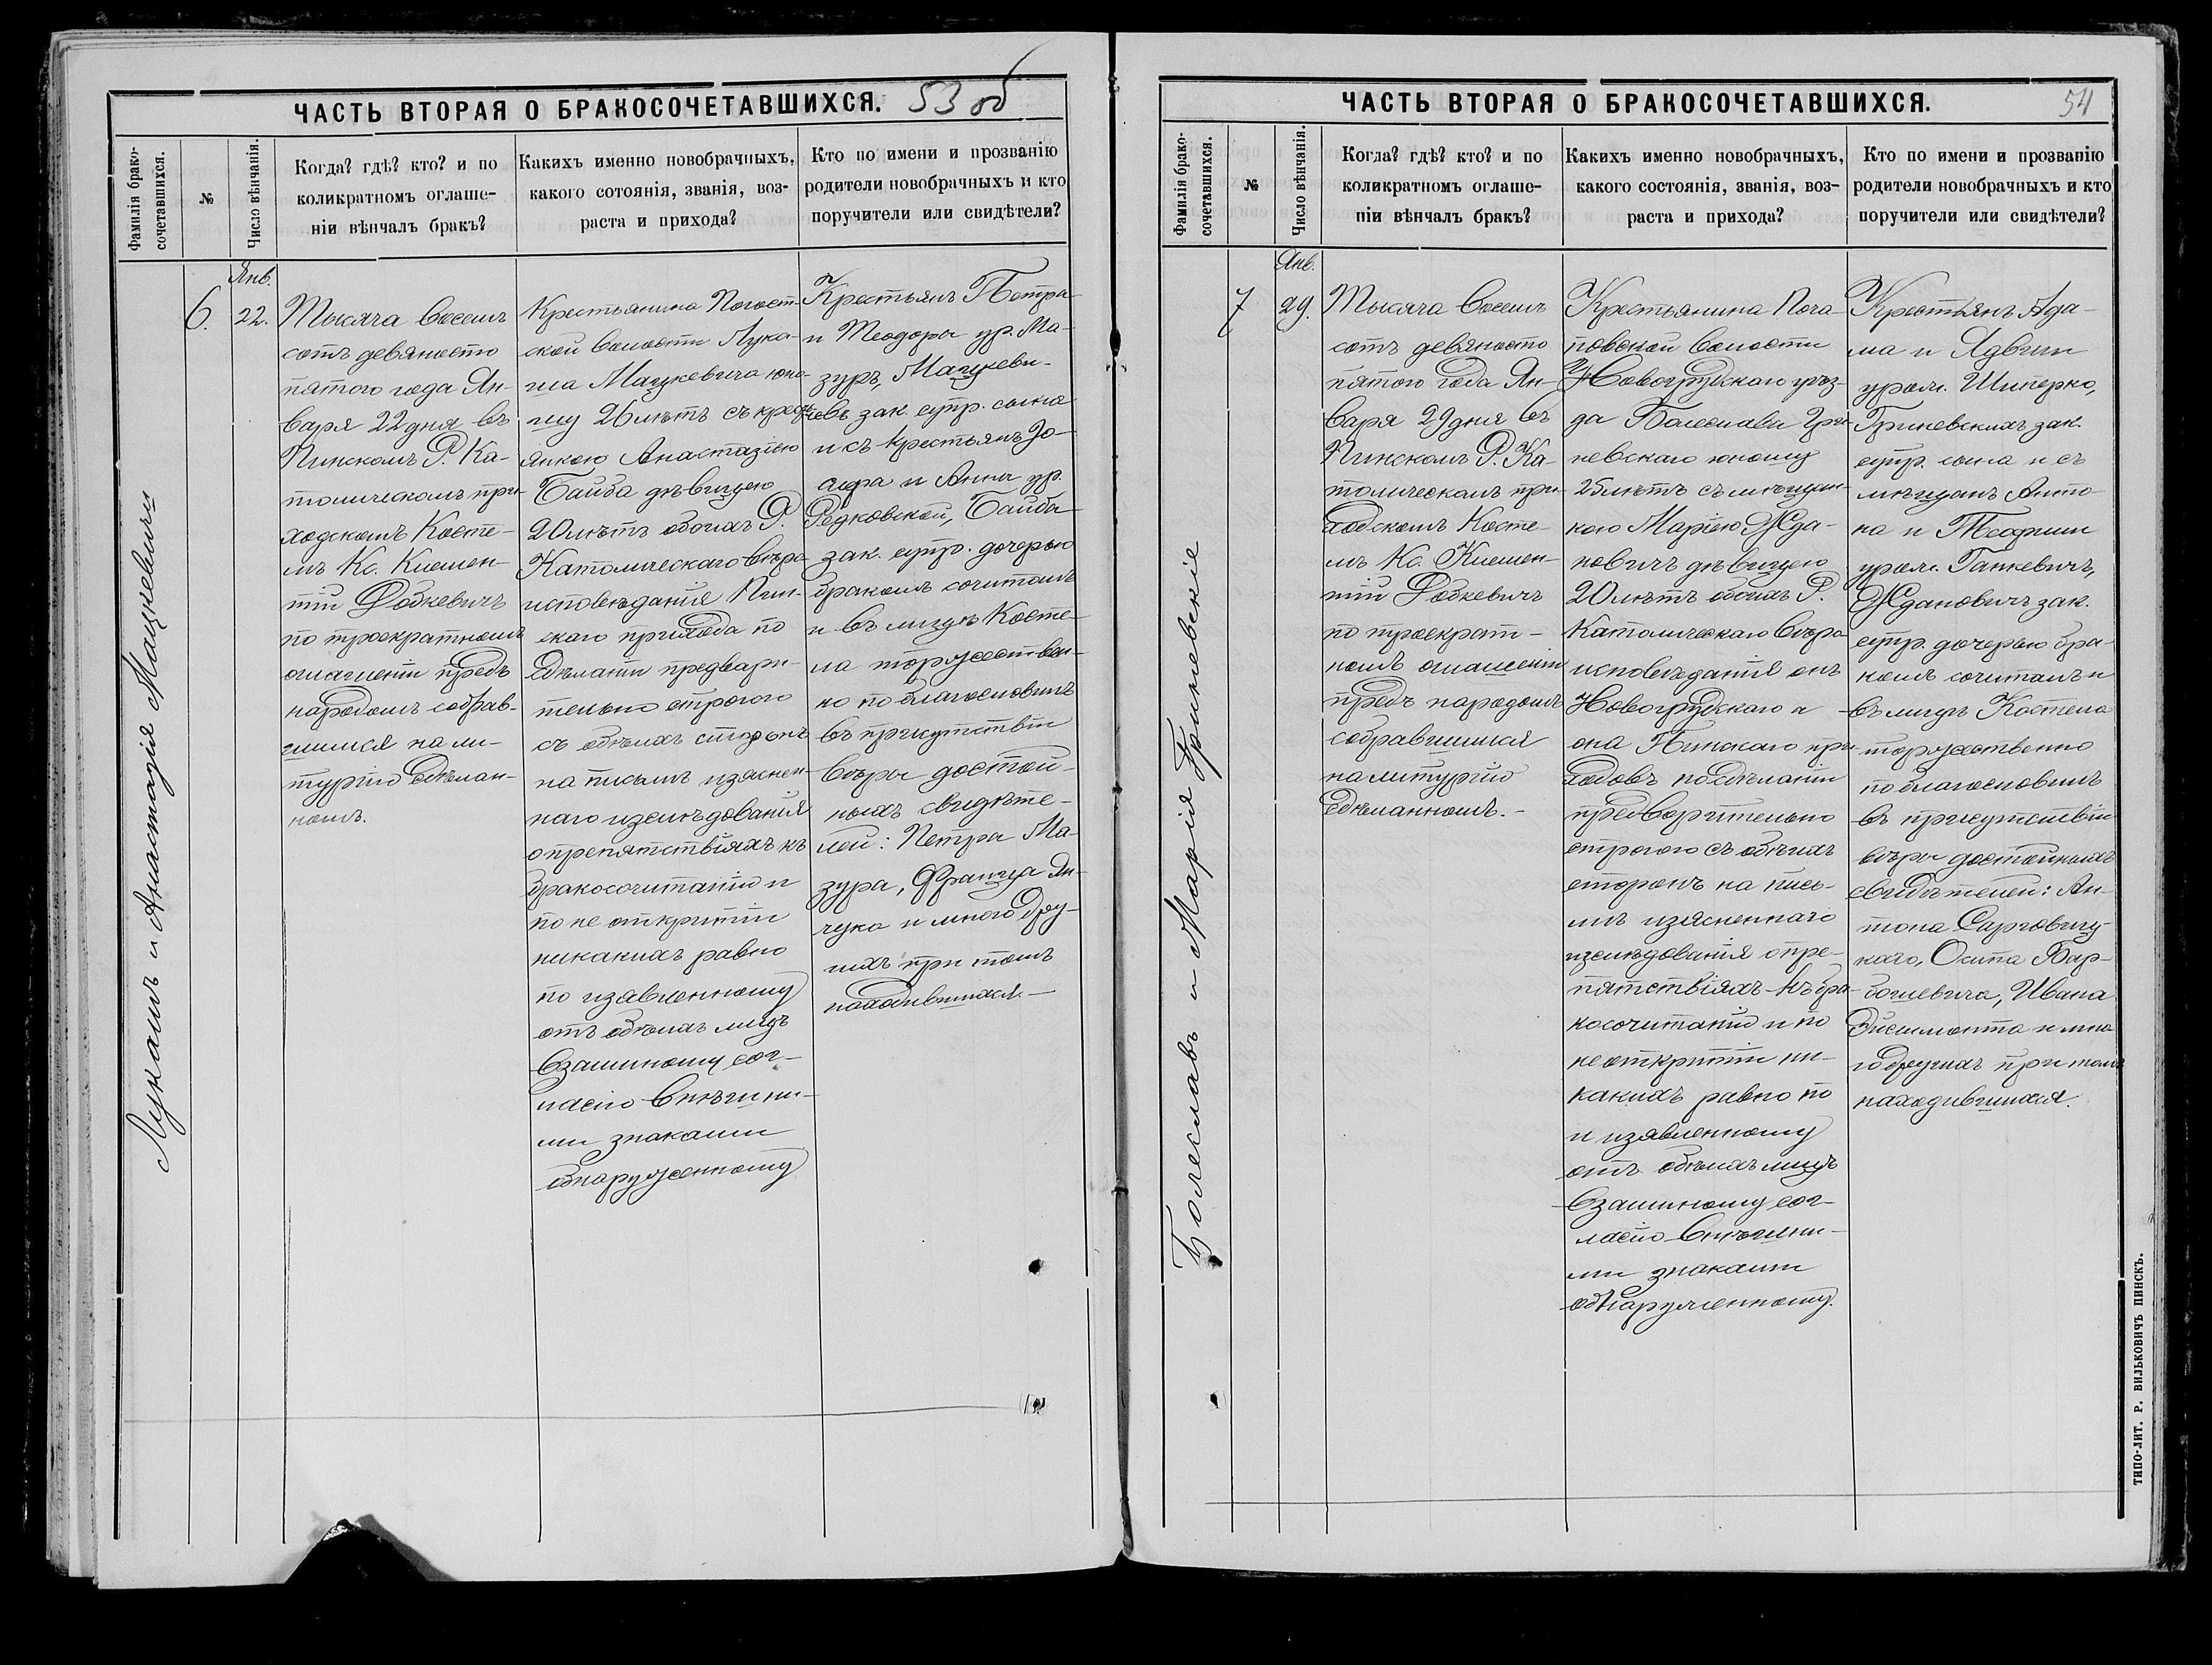 ЧАСТЬ ВТОРАЯ О БРАКОСОЧЕТАВШИХСЯ. 53 об
Фамилія брако-
сочетавшихся.
№
Число вѣнчанія.
Когда? гдѣ? кто? и по
коликратномъ оглаше-
ніи вѣнчалъ бракъ?
Какихъ именно новобрачныхъ,
какого сотоянія, званія, воз-
раста и прихода?
Кто по имени и прозванію
родители новобрачныхъ и кто
поручители или свидѣтели?
Лукашъ и Анастазія Мацкевичи
6.
Янв.
22.
Тысяча восемъ
сотъ девяносто
пятого года Ян-
варя 22 дня въ
Пинскомъ Р. Ка-
толическомъ при-
ходскомъ Косте-
лѣ Кс. Клемен-
тій Фобкевичъ
по троекратномъ
оглашеніи предъ
народомъ собрав-
шимся на ли-
тургію сдѣлан-
номъ.
Крестьянина Погост-
ской волости Лука-
ша Мацкевича юно-
шу 26 лѣтъ съ крест-
янкою Анастазіею
Байба дѣвицею
20 лѣтъ обоихъ Р.
Католическаго вѣро-
исповѣданія Пин-
скаго прихода по
сдѣланіи предвари-
тельно строгого
съ обѣихъ сторонъ
на письмѣ изяснен-
наго изслѣдованія
о препятствіяхъ къ
бракосочитанію и
по не открытіи
никакихъ равно
по изявленному
отъ обѣихъ лицъ
взаимному сог-
ласію внѣшни-
ми знаками
обнаруженному
Крестьянъ Петра
и Теодоры ур. Ма-
зуръ, Мацкеви-
чевъ зак. супр. сына
и съ крестьянъ Іо-
сифа и Анны ур.
Редковской, Байба
зак. супр. дочерью
бракомъ сочиталъ
и въ лицѣ Косте-
ла торжествен-
но поблагословилъ
въ присутствіи
вѣры достой-
ныхъ свидѣте-
лей: Петра Ма-
зура, Франца Ян-
чука и много дру-
гихъ при томъ
находившихся.—
ЧАСТЬ ВТОРАЯ О БРАКОСОЧЕТАВШИХСЯ. 54
Фамилія брако-
сочетавшихся.
№
Число вѣнчанія.
Когда? гдѣ? кто? и по
коликратномъ оглаше-
ніи вѣнчалъ бракъ?
Какихъ именно новобрачныхъ,
какого состоянія, званія, воз-
раста и прихода?
Кто по имени и прозванію
родители новобрачныхъ и кто
поручители или свидѣтели?
Болеславъ и Марія Гриневскіе
7
Янв.
29.
Тысяча восемъ
сотъ девяносто
пятого года Ян-
варя 29 дня въ
Пинскомъ Р. Ка-
толическомъ при-
ходскомъ Косте-
лѣ Кс. Клемен-
тій Фобкевичъ
по троекрат-
номъ оглашеніи
предъ народомъ
собравшимся
на литургію
сдѣланномъ.-
Крестьянина Поча-
повской волости
Новогрудскаго уѣз-
да Болеслава Гри-
невскаго юношу
25 лѣтъ съ мѣщан-
кою Маріею Жда-
новичъ дѣвицею
20 лѣтъ обоихъ Р.
Католическаго вѣро-
исповѣданія онъ
Новогрудскаго а
она Пинскаго при-
ходовъ по сдѣланіи
предворительно
строгого съ обѣихъ
сторонъ на пись-
мѣ изясненнаго
изслѣдованія о пре-
пятствіяхъ къ бра-
косочитанію и по
не открытіи ни-
какихъ равно по
и изявленному
отъ обѣихъ лицъ
взаимному сог-
ласію внѣшни-
ми знаками
обнаруженному.
Крестьянъ Ада-
ма и Ядвиги
урож. Шиперко,
Гриневскихъ зак.
супр. сына и съ
мѣщанъ Анто-
на и Теофили
урож. Ганкевичъ,
Ждановичъ зак.
супр. дочерью бра-
комъ сочиталъ и
въ лицѣ Костела
торжественно
поблагословилъ
въ присутствіи
вѣры достойныхъ
свидѣтелей: Ан-
тона
Осипа Бар-
Ивана
и мно-
го другихъ при томъ
находившихся.
ТИПО-ЛИТ. Р. ВИЛЬКОВИЧЪ ПИНСКЪ.